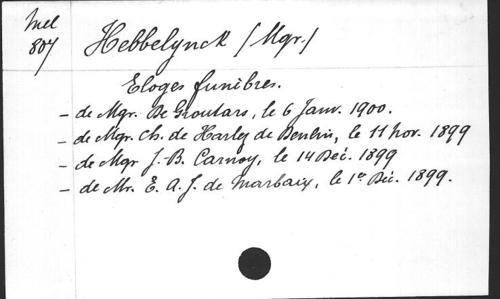 Mel
807
Hebbelynck (Mgr.)
Eloges funèbres.
- de Mgr. De Groutars, le 6 Janv. 1900.
- de Mgr. Ch. de Harlez de Deulin, le 11 nov. 1899
- de Mgr J. B. Carnoy, le 14 Déc. 1899
- de Mr. E. A. J. de Marbaix, le 1er Déc. 1899.